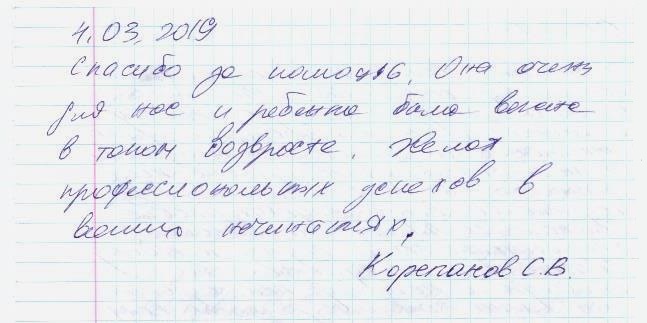 4.03.2019
Спасибо за помощь. Она очень
для нас и ребенка была важна
в таком возврасте. Желаю
профессиональных успехов в
ваших начинаниях.
Корепанов С.В.